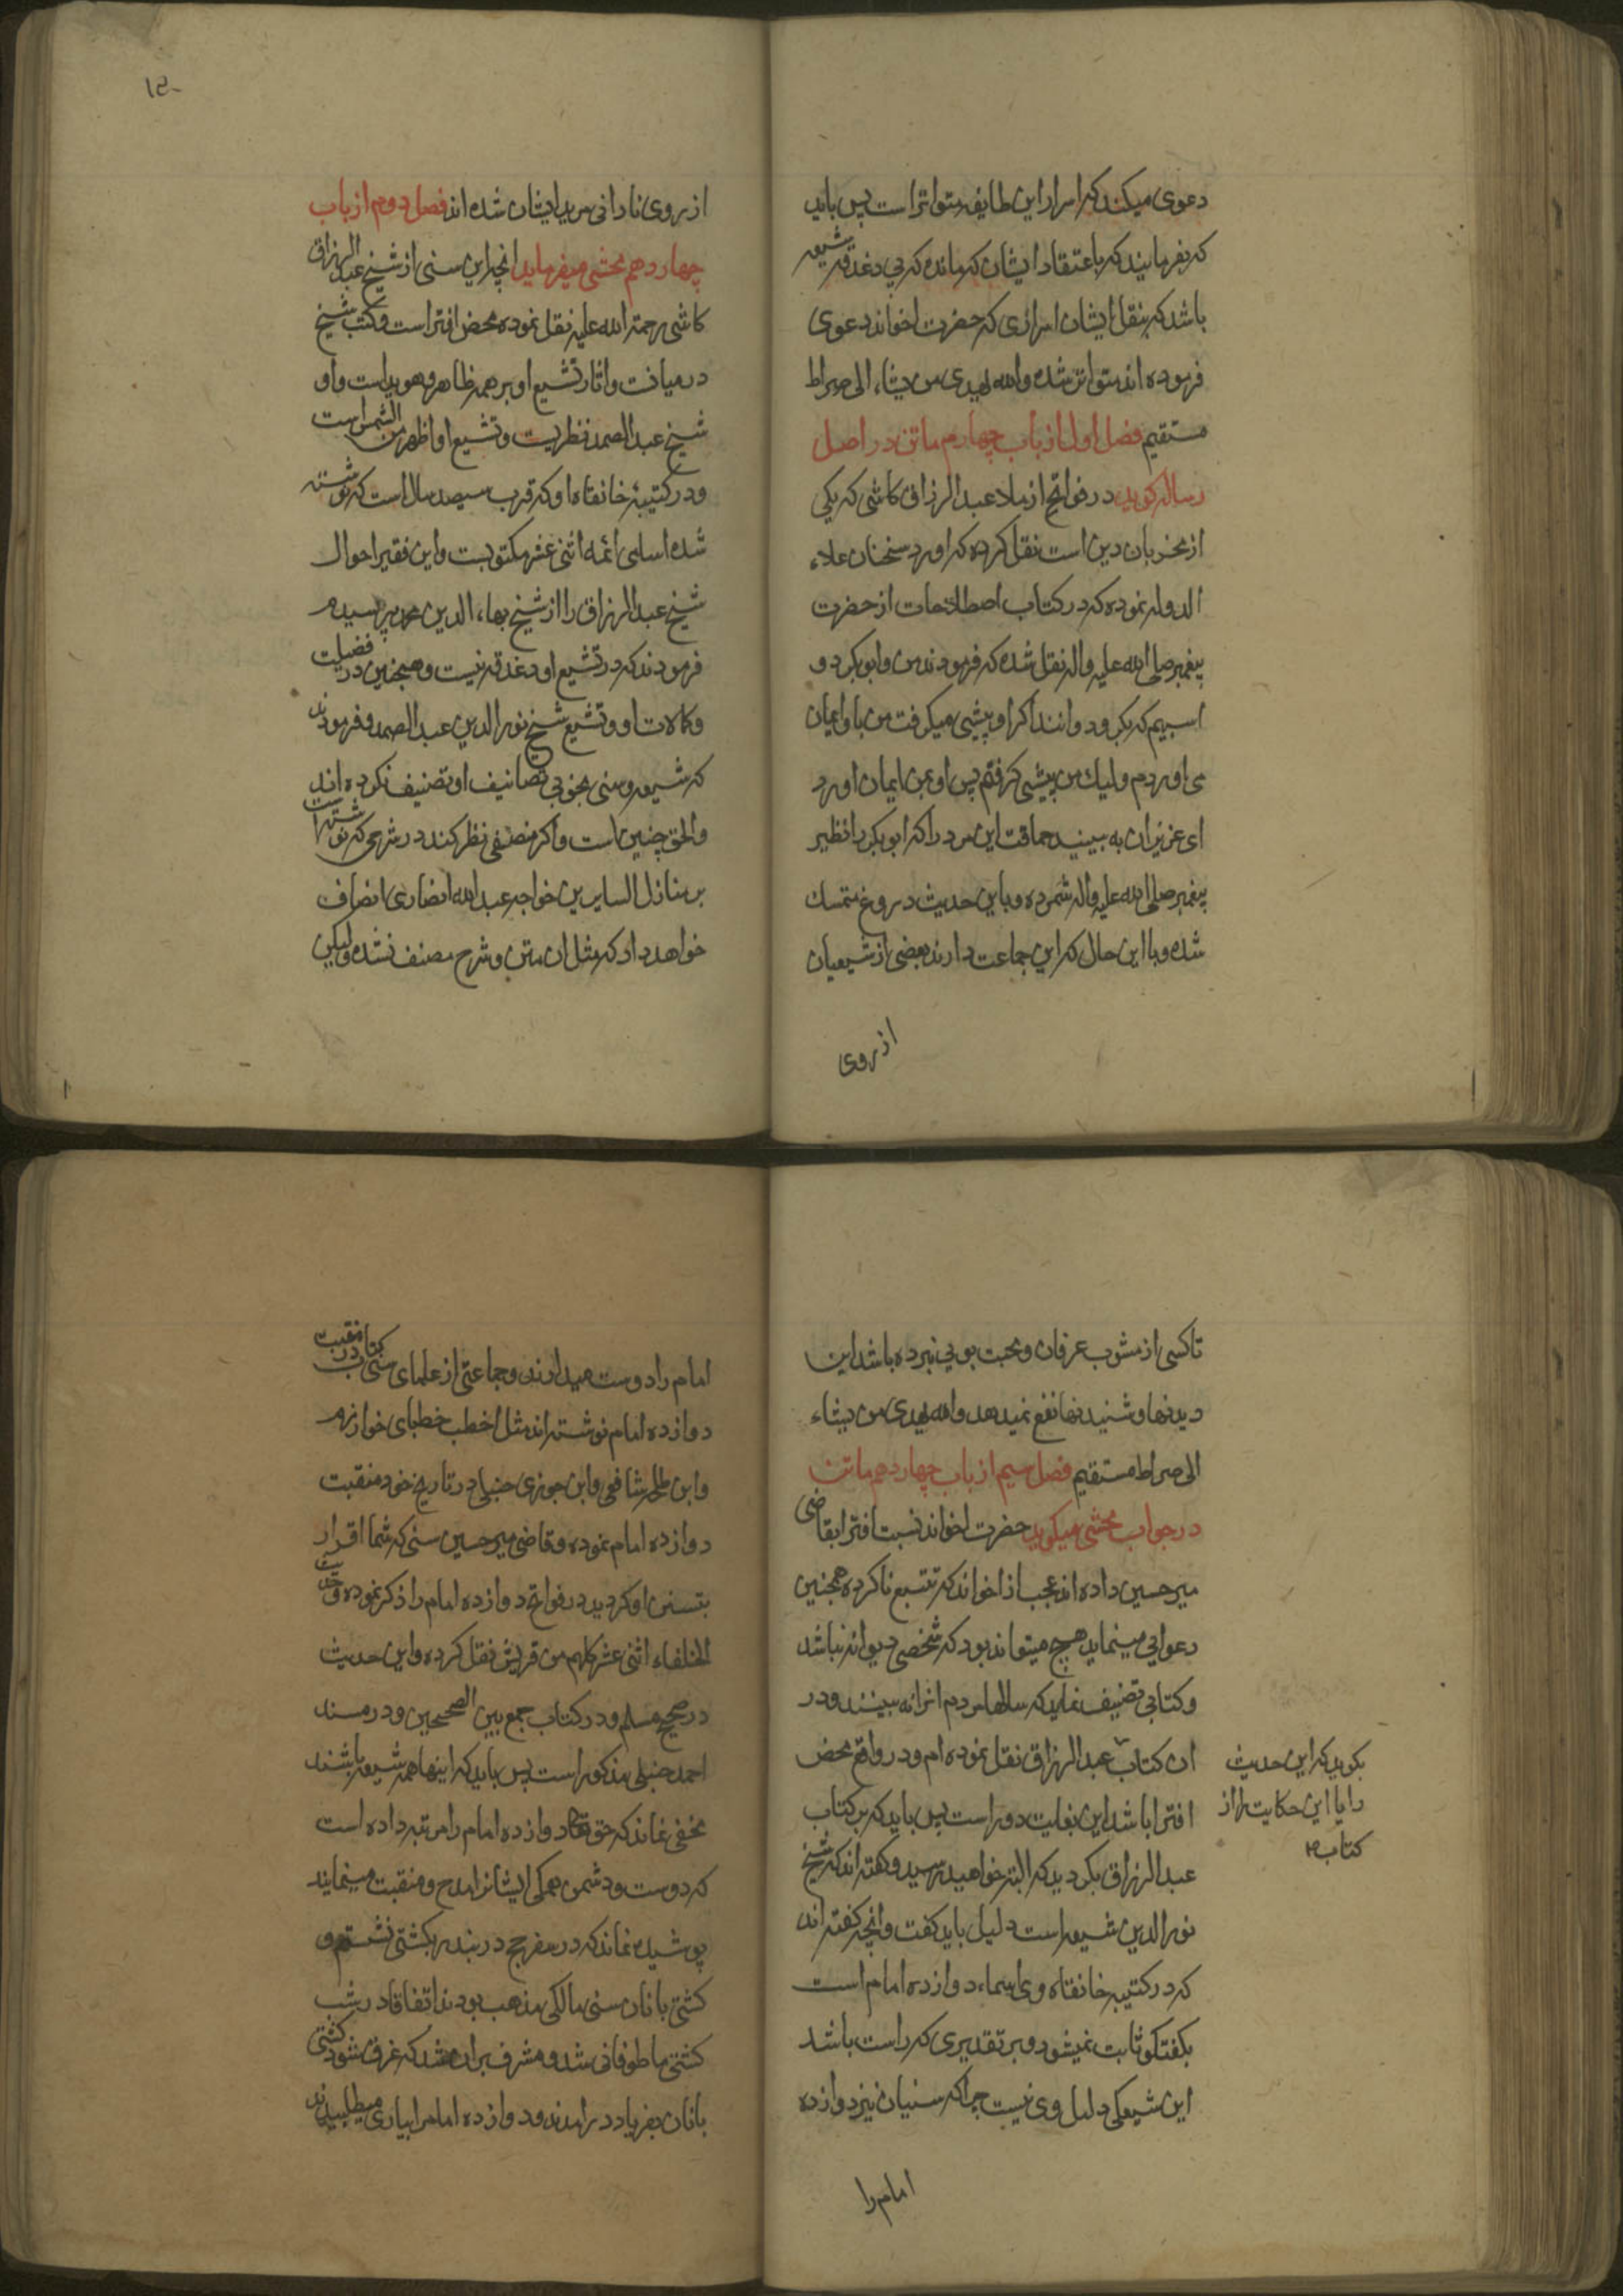 دعوی میکند که اسرار این طایفه متواتر است پس باید
که بفرمایند که باعتقاد ایشان که مانده که بی دغدغه شیعه
باشد که بنقل ایشان اسراری که حضرت اخواند دعوی
فرموده اند متواتر شده والله یهدی من یشاء الی صراط
مستقیم فصل اول از باب چهاردهم ماتن در اصل
رساله کوید در فواتح از ملا عبد الرزاق کاشی که یکی
از مخربان دین است نقل کرده که او رد سخنان علاء
الدوله نموده که در کتاب اصطلاحات از حضرت
پیغمبر صلی الله علیه واله نقل شده که فرمودند من وابوبکر دو
اسبیم که بکرو دوانند اکر او پیشی میکرفت من باو ایمان
می اوردم ولیک من پیشی کرفتم پس او بمن ایمان اورد
ای عزیزان به بینید حماقت این مرد را که ابوبکر را نظیر
پیغمبر صلی الله علیه واله شمرده و باین حدیث دروغ متمسک
شده وبا این حال که این جماعت دارند بعضی از شیعیان
از روی
۱۵۰
از روی نادانی مرید ایشان شده اند فصل دوم از باب
چهاردهم محشی میفرماید انچه این سنی از شیخ عبد الرزاق
کاشی رحمة الله علیه نقل نموده محض افتراست وکتب شیخ
در میانست واثار تشیع او بر همه ظاهر وهویداست واو
شیخ عبد الصمد نطنزیست وتشیع او اظهر من الشمس است
ودر کتیبه خانقاه او که قرب سیصد سال است که نوشته
شده اسامی ائمه اثنی عشر مکتوبست واین فقیر احوال
شیخ عبد الرزاق را از شیخ بهاء الدین محمد پرسیدم
فرمودند که در تشیع او دغدغه نیست وهمچنین در فضیلت
وکالات او وتشیع شیخ نور الدین عبد الصمد وفرمودند
که شیعه وسنی بخوبی تصانیف او تصنیف نکرده اند
والحق چنین است واکر منصفی نظر کند در شرحی که نوشته است
بر منازل السایرین خواجه عبد الله انصاری انصاف
خواهد داد که مثل ان متن وشرح مصنف نشده ولیکن
تا کسی از مشرب عرفان ومحبت بویی نبرده باشد این
دیدنها وشنیدنها نفع نمیدهد والله یهدی من یشاء
الی صراط مستقیم فصل سیم از باب چهاردهم ماتن
در جواب محشی میکوید حضرت اخواند نسبت افترا بقاضی
میر حسین داده اند عجب از اخواند که تتبع ناکرده همچنین
دعوایی مینماید هیچ میتواند بود که شخصی دیوانه نباشد
وکتابی تصنیف نماید که سالها مردم انرا نه بینند ودر
ان کتاب عبد الرزاق نقل نموده ام ودر واقع محض
افترا باشد این بغایت دور است پس باید که بر کتاب
عبد الرزاق بکردید که البته خواهید رسید وکفته اند که شیخ
نور الدین شیعه است دلیل باید کفت وانچه کفته اند
که در کتیبه خانقاه وی اسماء دوازده امام است
بکفتکو ثابت نمیشود وبر تقدیری که راست باشد
این شیعکی دلیل وی نیست چراکه سنیان نیز دوازده
بکوید که این حدیث
را یا این حکایت را از
کتاب
امام را
امام را دوست میدارند وجماعتی از علمای سنی کتاب در منقبت
دوازده امام نوشته اند مثل اخطب خطبای خوارزم
وابن طلحه شافعی وابن جوزی حنبلی در تاریخ خود منقبت
دوازده امام نموده وقاضی میر حسین سنی که شما اقرار
بتسنن او کردید در فواتح دوازده امام را ذکر نموده وحدیث
الخلفاء اثنی عشر کلهم من قریش نقل کرده واین حدیث
در صحیح مسلم ودر کتاب جمع بین الصحیحین ودر مسند
احمد حنبلی مذکور است پس باید که اینها همه شیعه باشند
مخفی نماند که حق تعالی دوازده امام را مرتبه داده است
که دوست ودشمن همکی ایشانرا مدح ومنقبت مینمایند
پوشیده نماند که در سفر حج در بندر بکشتی نشستم و
کشتی بانان سنی مالکی مذهب بودند اتفاقا در شب
کشتی ما طوفانی شد ومشرف بران شد که غرق شود کشتی
بانان بفریاد درامدند ودوازده امام را بیاری میطلبیدند